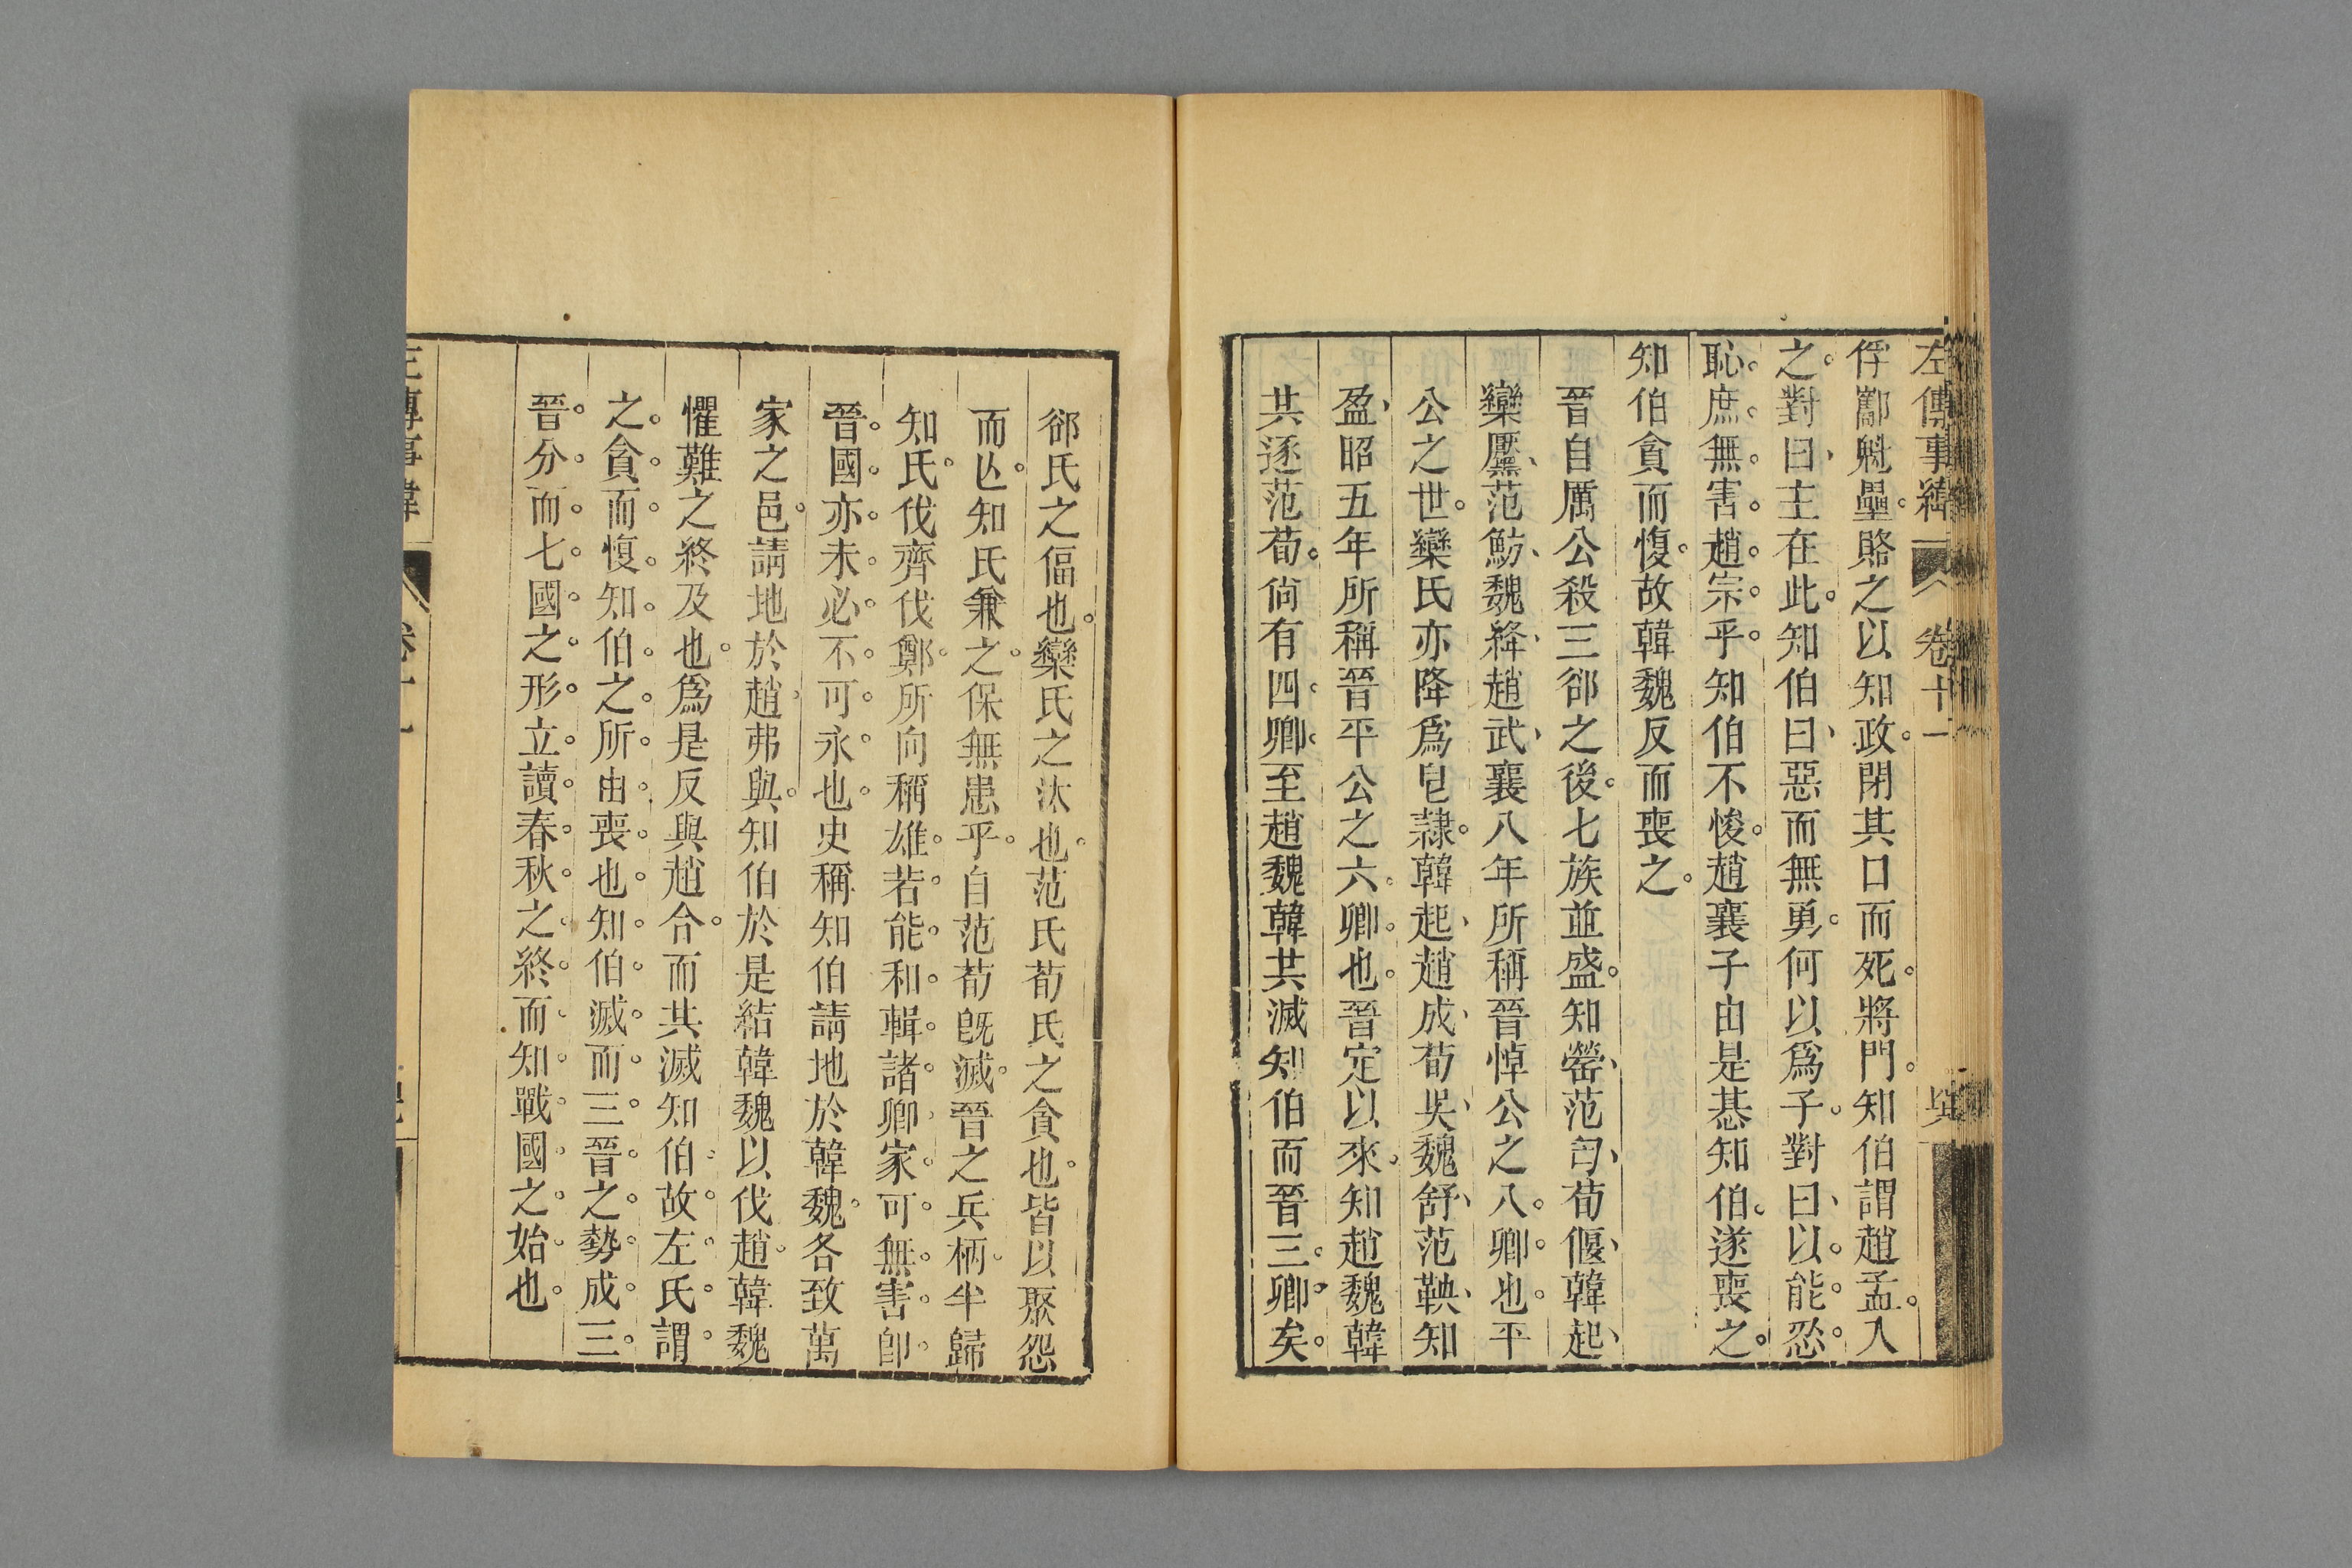 左傳事緯 卷十一
俘酅魁壘。賂之以知政。閉其口而死。將門。知伯謂趙孟。入
之。對曰、主在此。知伯曰、惡而無勇。何以爲子。對曰、以。能。忍。
恥。庶。無。害。趙。宗。乎。知伯不悛。趙襄子由是惎知伯。遂喪之。
知伯貪而愎。故韓魏反而喪之。
晉自厲公殺三郤之後。七族並盛。知罃、范匄、荀偃、韓起、
欒黶、范魴、魏絳、趙武、襄八年所稱晉悼公之八。卿。也。平
公之世。欒氏亦降爲皂隷。韓起、趙成、荀吳、魏舒、范鞅、知
盈、昭五年所稱晉平公之六。卿。也。晉定以來。知趙魏韓
共逐范荀。尙有四。卿。至趙魏韓共滅知伯而晉三。卿。矣。
郤氏之偪也。欒氏之汰也。范氏荀氏之貪也。皆以聚怨
而亾。知氏兼之。保無患乎。自范荀旣滅。晉之兵柄。半歸
知氏。伐齊伐鄭。所向稱雄。若。能。和。輯。諸。卿。家。可。無。害。卽。
晉。國。亦。未。必。不。可。永。也。史稱知伯請地於韓魏。各致萬
家之邑。請地於趙。弗與。知伯於是結韓魏以伐趙。韓魏
懼難之終及也。爲是反與趙合。而共滅知伯。故。左。氏。謂。
之。貪。而。愎。知。伯。之。所。由。喪。也。知。伯。滅。而。三。晉。之。勢。成。三。
晉。分。而。七。國。之。形。立。讀。春。秋。之。終。而。知。戰。國。之。始。也。